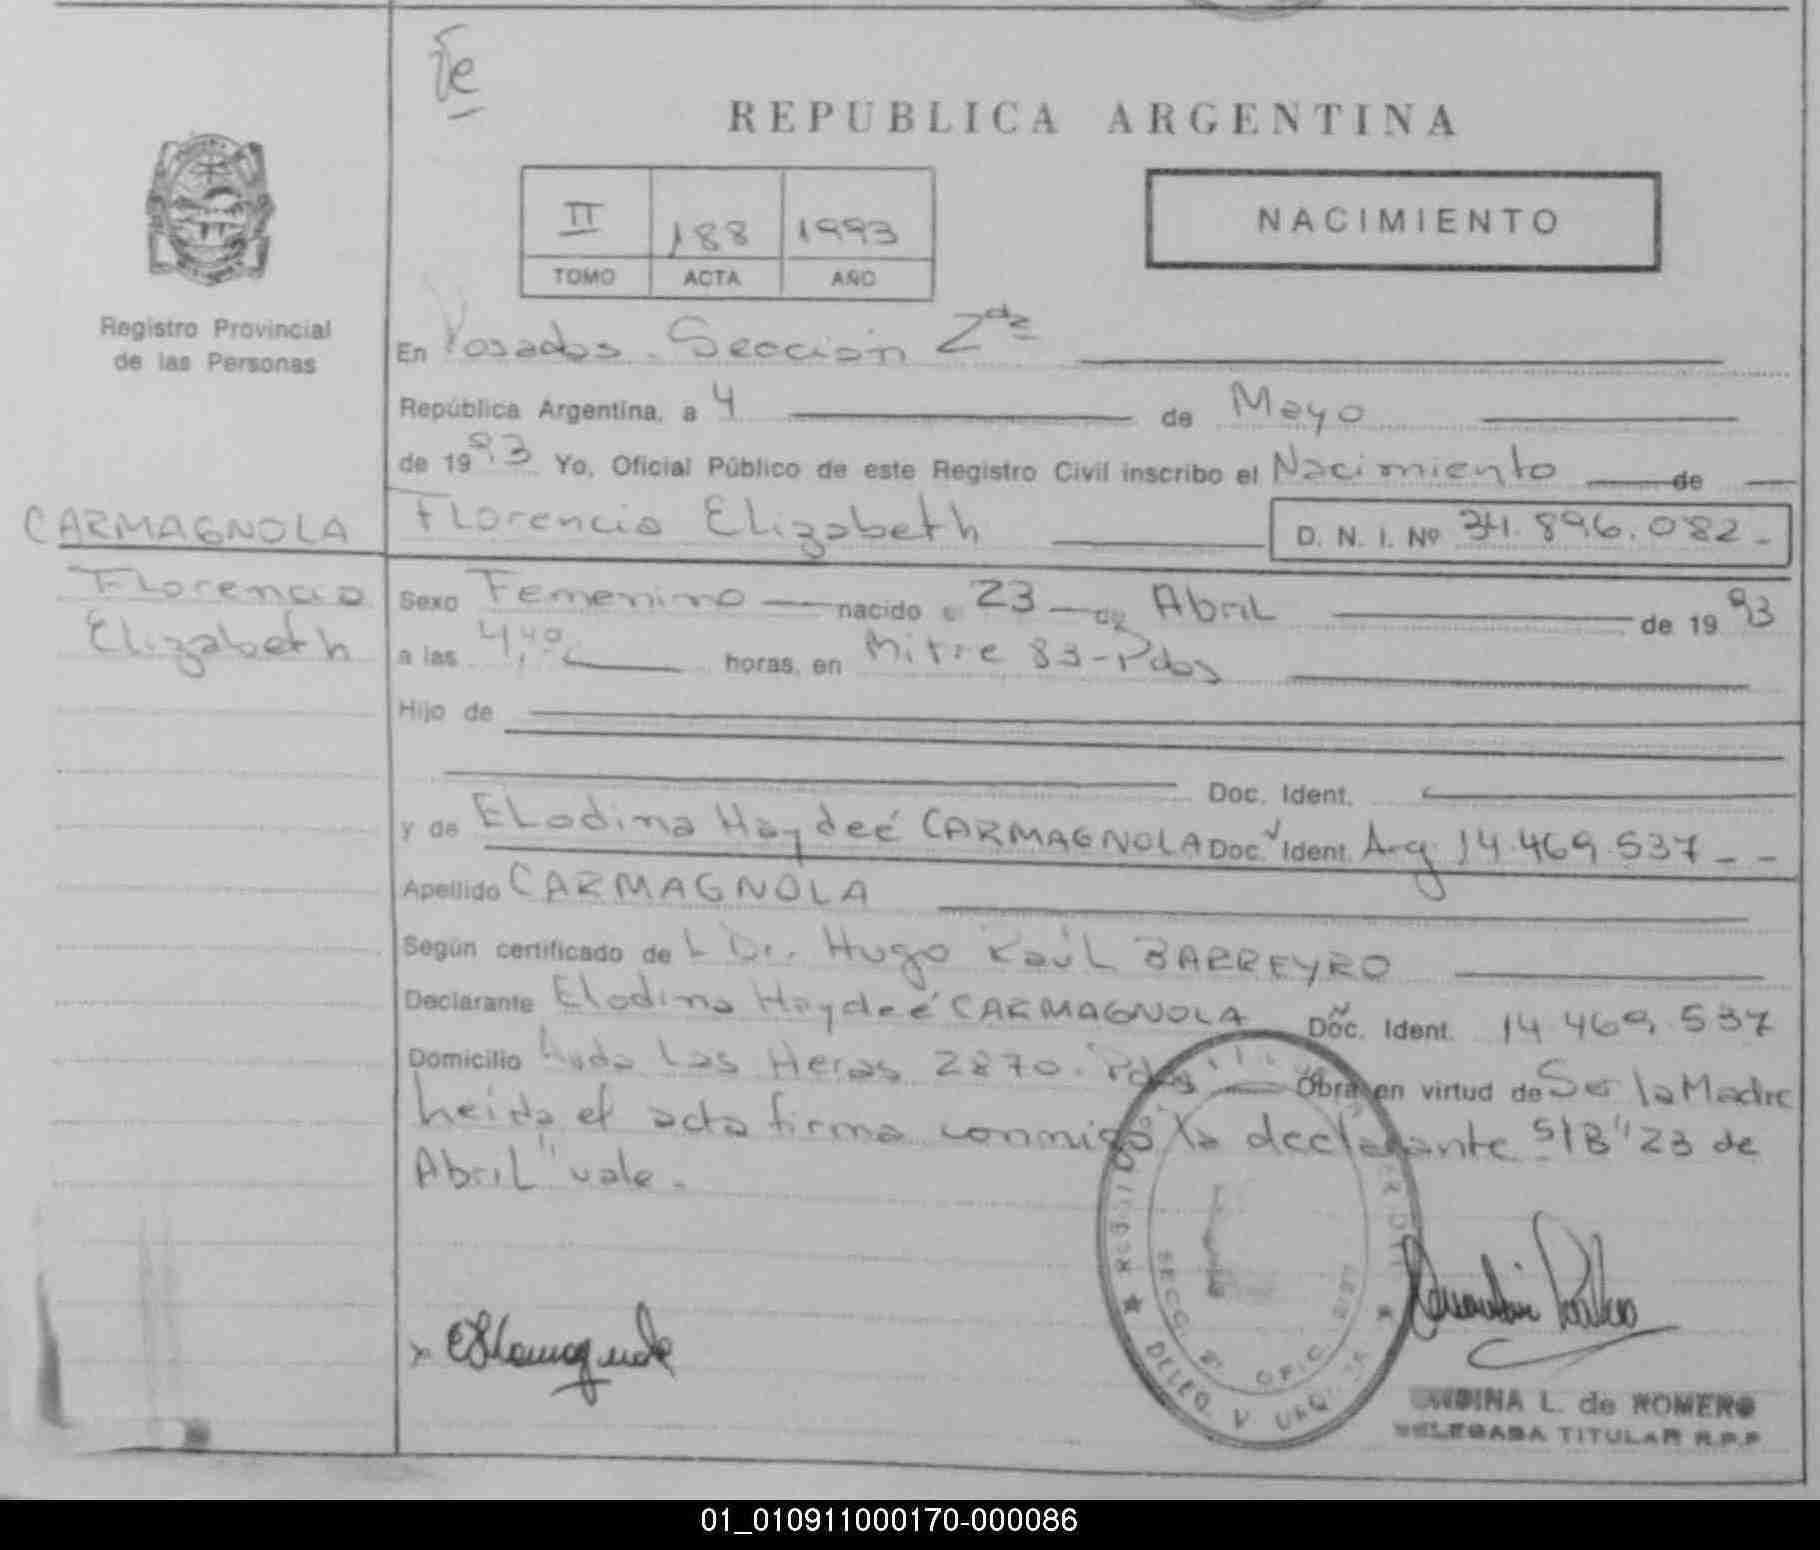 Te
REPUBLICA ARGENTINA
II 188 1993
TOMO ACTA AÑO
NACIMIENTO
Registro Provincial
de las Personas
En Posadas. Sección 2da
República Argentina, a 4 de Mayo
de 1993 Yo, Oficial Público de este Registro Civil inscribo el Nacimiento de
CARMAGNOLA Florencia Elizabeth D. N. I. Nº 34.896.082-
Florencia
Elizabeth
Sexo Femenino nacido el 23 de Abril de 1993
a las 4,40 horas, en Mitre 83-Pdas
Hijo de
Doc. Ident.
y de Elodina Haydeé CARMAGNOLA Doc. Ident. Arg 14.469.537--
Apellido CARMAGNOLA
Según certificado del Dr. Hugo Raúl BARREYRO
Declarante Elodina Haydeé CARMAGNOLA Doc. Ident. 14.469.537
Domicilio Avda Las Heras 2870. Pdas Obra en virtud de Ser la Madre
heida el acta firma conmigo la declarante S/B "23 de
Abril" vale.
SECC. 2ª OFIC.
DELEG.
L. de ROMERO
DELEGADA TITULAR R.P.P
01_010911000170-000086